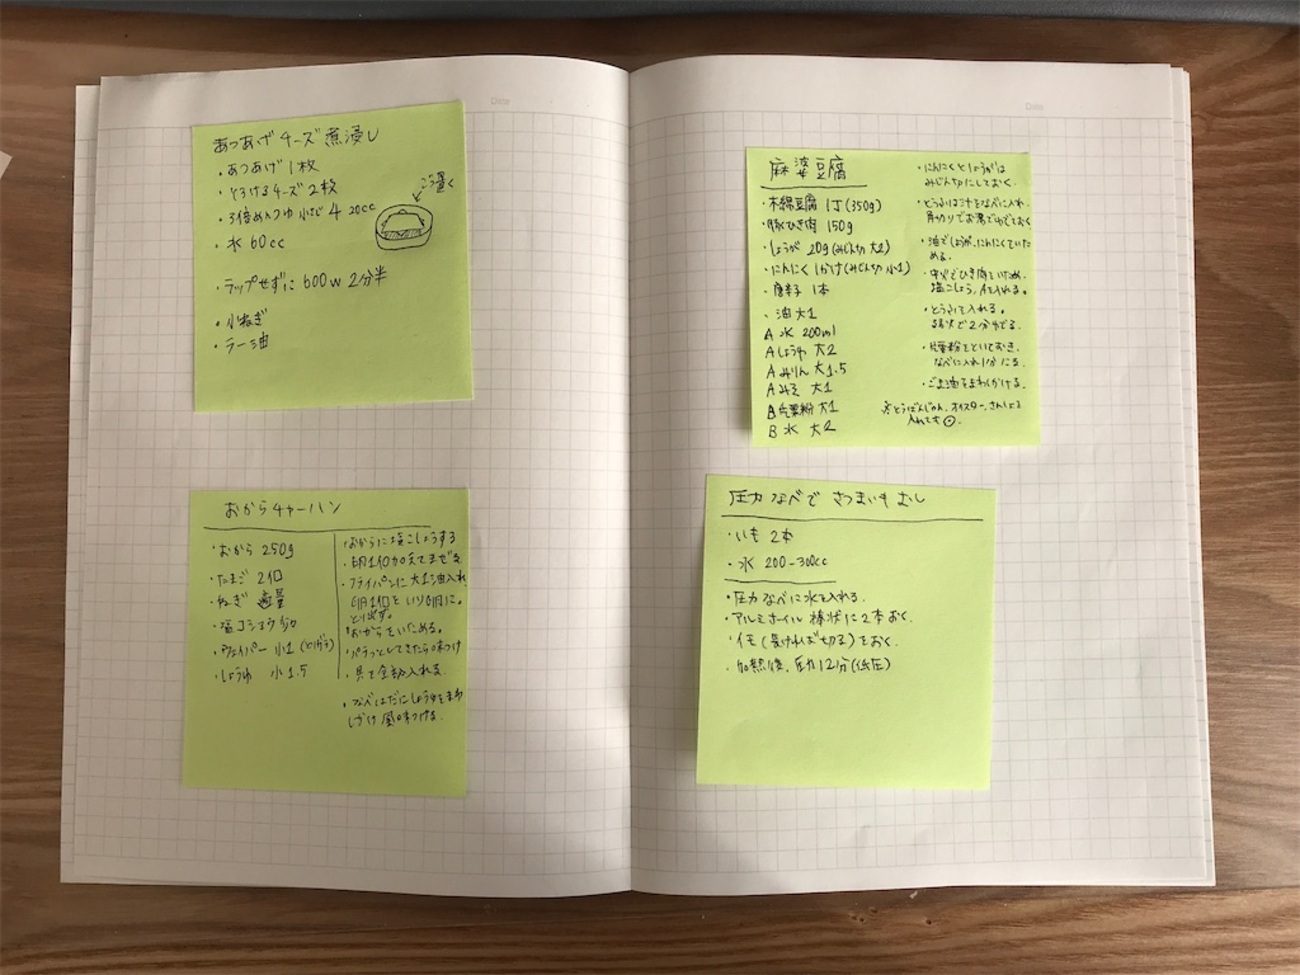 Date
あつあげチーズ煮浸し
・あつあげ1枚
・とろけるチーズ2枚
・3倍めんつゆ 小さじ4 20cc
・水 60cc
こう置く
・ラップせずに 600w 2分半
・小ねぎ
・ラー油
おからチャーハン
・おから 250g
・たまご 2個
・ねぎ 適量
・塩コショウ 少々
・ウェイパー 小1(とりガラ)
・しょうゆ 小1.5
・おからに塩こしょうする
・卵1個加えてまぜる
・フライパンに大1油入れ、
卵1個をいり卵に。
とり出す。
・おからをいためる。
・パラっとしてきたら味つけ
・具を全部入れる。
・なべはだにしょうゆをまわ
しかけ風味つける。
Date
麻婆豆腐
・木綿豆腐 1丁(350g)
・豚ひき肉 150g
・しょうが 20g(みじん切 大2)
・にんにく 1かけ(みじん切 小1)
・唐辛子 1本
・油 大1
A 水 200ml
A しょうゆ 大2
A みりん 大1.5
A みそ 大1
B 片栗粉 大1
B 水 大2
・にんにくとしょうがは
みじん切にしておく。
・とうふは
角切りでお湯でゆでておく
・油でしょうが、にんにくていた
める。
・中火でひき肉をいため、
塩こしょう、Aを入れる。
・とうふを入れる。
弱火で2分ゆでる。
・片栗粉をといておき、
なべに入れ1分にる。
・ごま油をまわしかける。
※とうばんじゃん、オイスター、さんしょう
入れても◎。
圧力なべで さつまいもむし
・いも 2本
・水 200-300cc
・圧力なべに水を入れる。
・アルミホイル 棒状に2本おく。
・イモ(長ければ切る)をおく。
・加熱後、圧力12分(低圧)